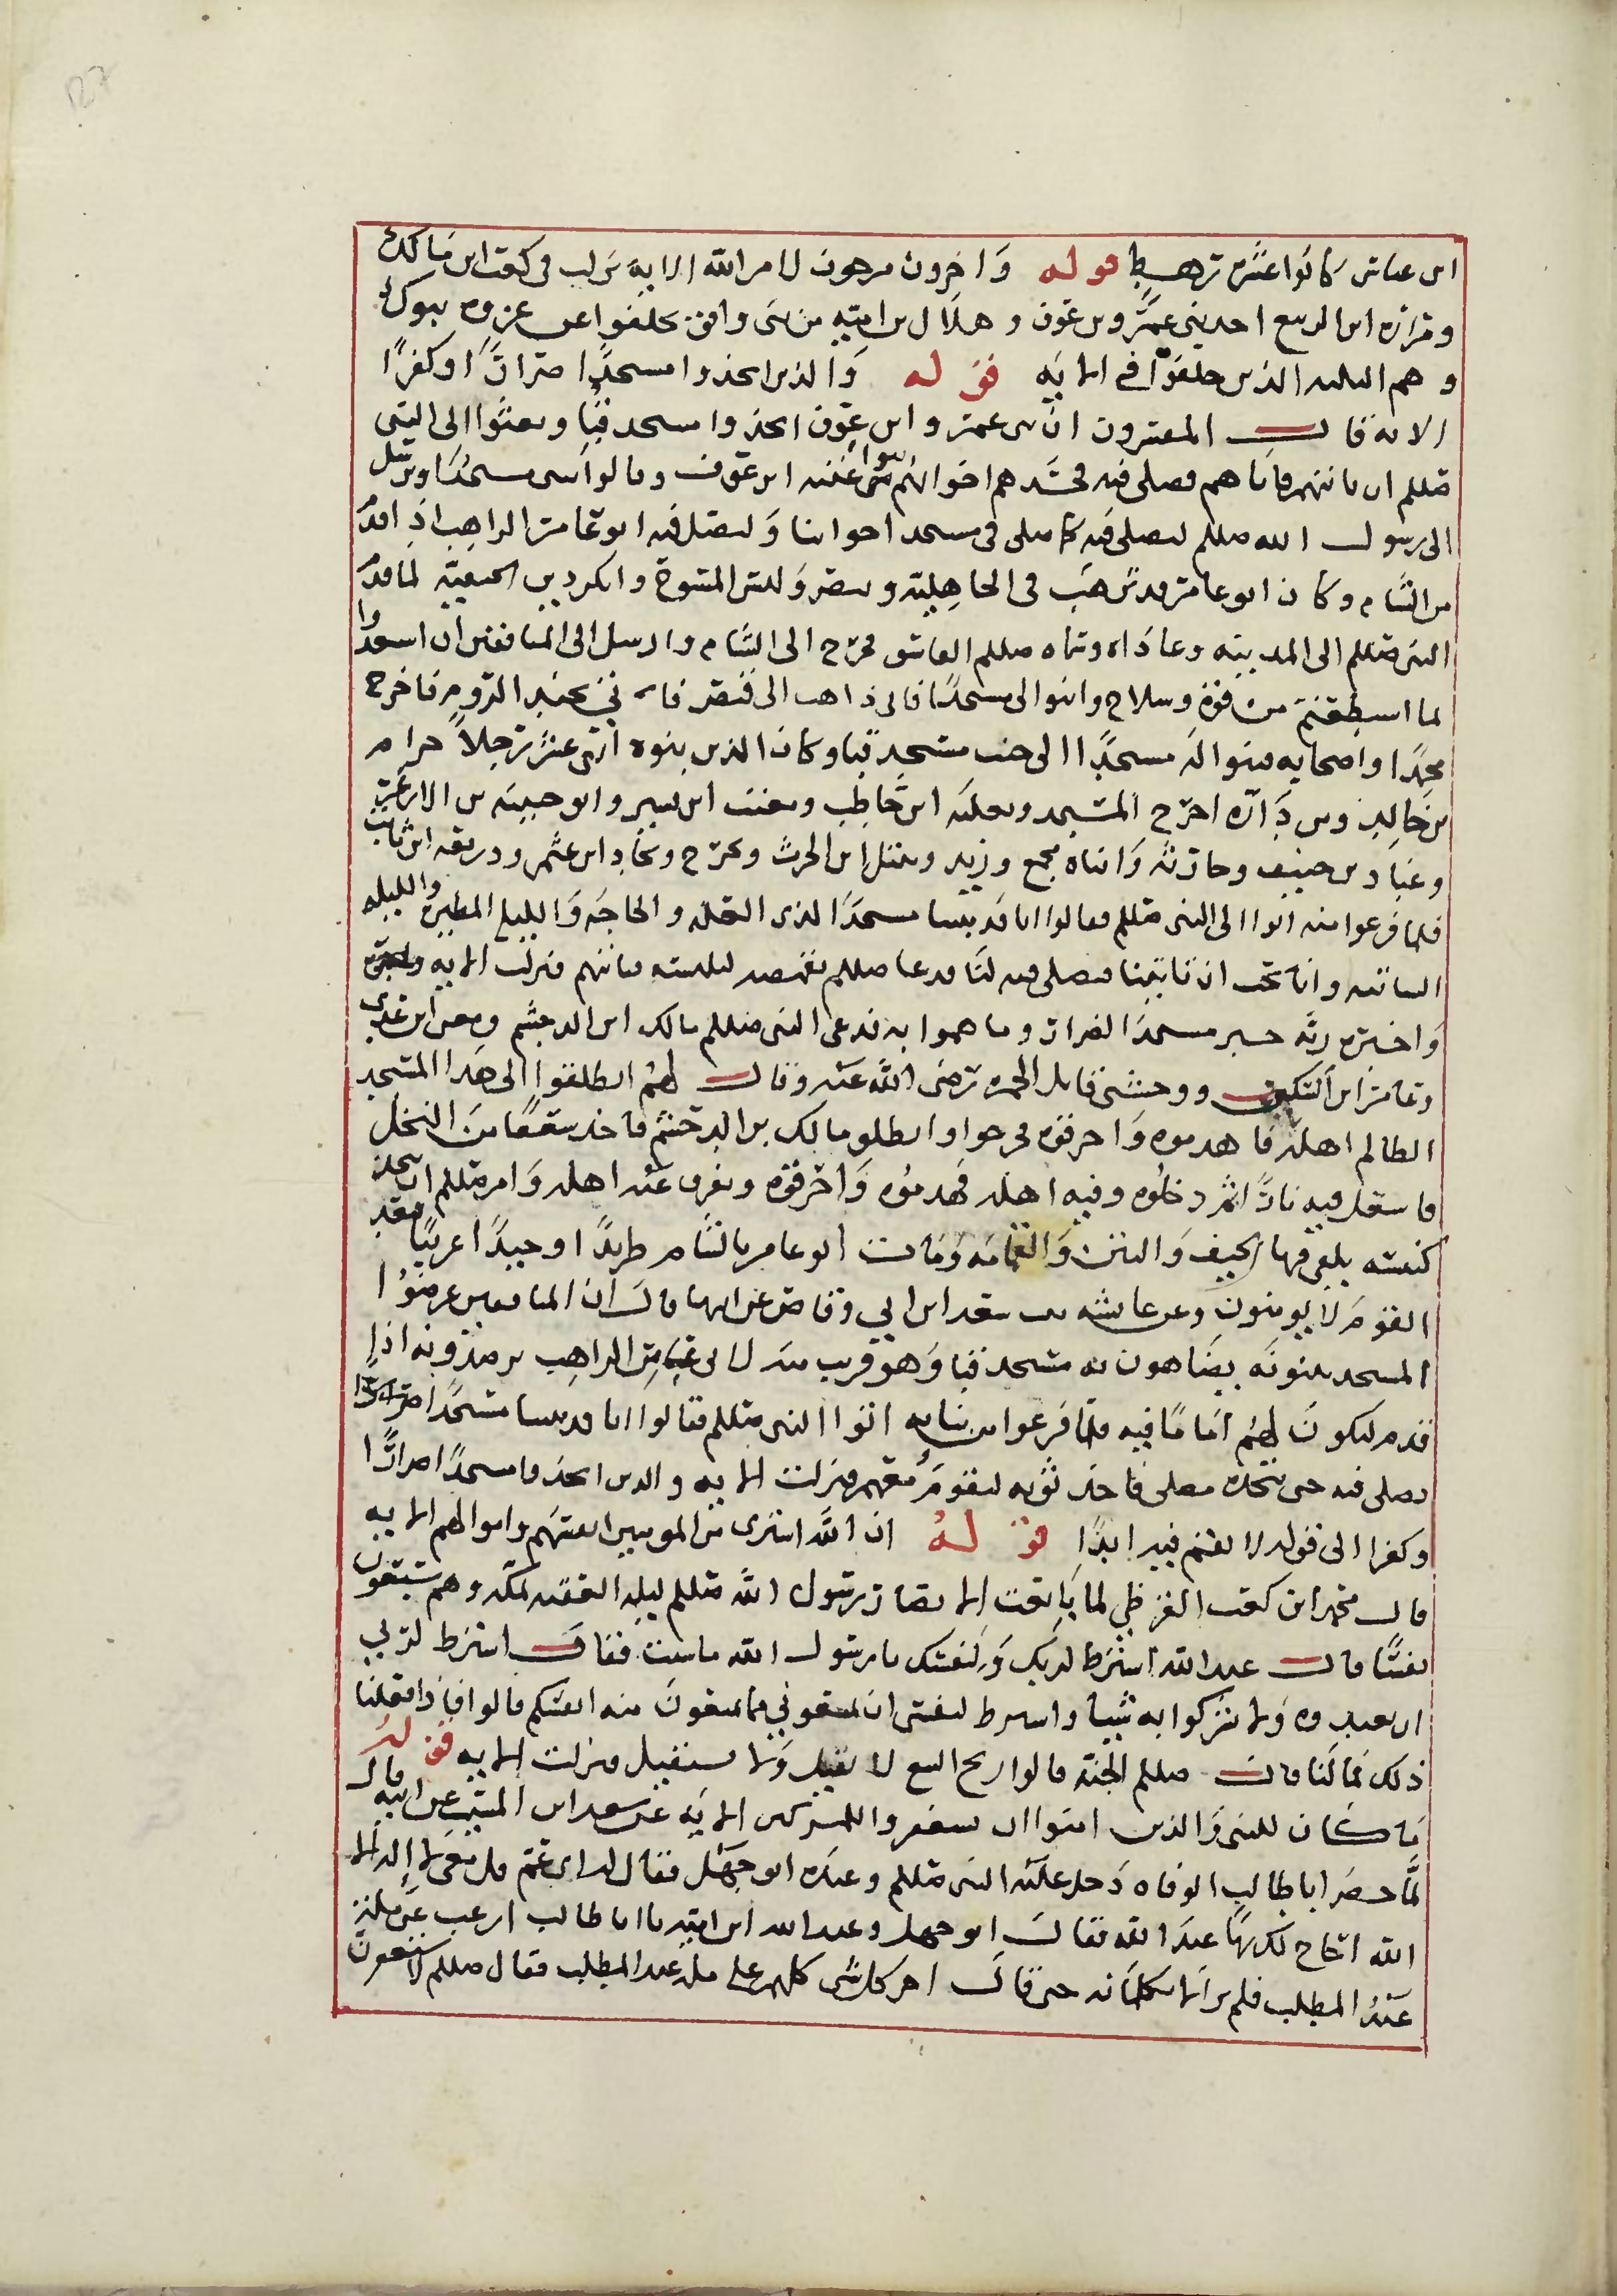 ابن عباس كانوا عشرة رهط قوله واخرون مرجون لامر الله الاية نزلت في كعب ابن مالك
ومرارة ابن الربيع احد بني عمرو بن عوف وهلال بن امية من بني واقف تخلفوا عن غزوة تبوك
وهم الثلثه الذين خلفوا في الاية قوله والذين اتخذوا مسجدًا ضرارًا وكفرًا
الايه قال المفسرون ان بني عمرو ابن عوف اتخذوا مسجد قبا وبعثوا الى النبي
صللم ان ياتيهم فاتاهم فصلى فيه فحسدهم اخوانهم بنوا غنم ابن عوف وقالوا نبني مسجدًا ونرسل
الى رسول الله صللم ليصلي فيه كما صلى في مسجد اخواننا وليصل فيه ابو عامر الراهب اذا قدم
من الشام وكان ابو عامر قد ترهب في الجاهلية وتنصر ولبس المسوح وانكر دين الحنيفية لما قدم
النبي صللم الى المدينه وعاداه وسماه صللم الفاسق فخرج الى الشام وارسل الى المنافقين ان استعدوا
لما استطعتم من قوة وسلاح وابنوا لي مسجدًا فاني ذاهب الى قيصر فاتي بجند الروم فاخرج
محمدًا واصحابه فبنوا له مسجدًا الى جنب مسجد قبا وكان الذين بنوه اثنى عشر رجلاً حزام
بن خالد ومن داره اخرج المسجد وثعلبه ابن حاطب ومعتب ابن قشير وابو حبيبه بن الازعر
وعباد بن حنيف وحارثة وابناه مجمع وزيد ونبتل ابن الحرث وبحزج وبجاد ابن عثمن ووديعه ابن ثابت
فلما فرغوا منه اتوا الى النبي صللم فقالوا انا قد بنينا مسجدًا لذي العله والحاجه والليله المطيره والليله
الشاتيه وانا نحب ان تاتينا فتصلي فيه لنا فدعا صللم بقميصه ليلبسه فياتيهم فنزلت الاية
واخبره ربه خبر مسجد الضرار وما هموا به فدعى النبي صللم مالك ابن الدخشم ومعن ابن عدي
وعامر ابن السكن ووحشي قاتل الحمزه رضى الله عنه وقال لهم انطلقوا الى هذا المسجد
الظالم اهله فاهدموه واحرقوه فخرجوا وانطلق مالك بن الدخشم فاخذ سعفًا من النخل
فاشعل فيه نارًا ثم دخلوه وفيه اهله فهدموه واحرقوه وتفرق عنه اهله وامر صللم ان يتخذ
كنيسه يلقى فيها الجيف والنتن والقمامه ومات ابو عامر بالشام طريدًا وحيدًا غريبًا فبعدًا
لقوم لا يومنون وعن عائشه بنت سعد ابن ابي وقاص عن ابيها قال ان المنافقين عرضوا
المسجد يبنونه يضاهون به مسجد قبا وهو قريب منه لابي عامر الراهب يرصدونه اذا
قدم ليكون لهم امامًا فيه فلما فرغوا من بنايه اتوا النبي صللم فقالوا انا قد بنينا مسجدًا
فصلى فيه حتى نتخذه مصلى فاخذ ثوبه ليقوم معهم فنزلت الاية والذين اتخذوا مسجدًا ضرارًا
وكفرا الى قوله لا تقم فيه ابدًا قوله ان الله اشترى من المومنين انفسهم واموالهم الاية
قال محمد ابن كعب القرظي لما بايعت الانصار رسول الله صللم ليلة العقبه بمكه وهم سبعون
نفسًا قال عبد الله اشترط لربك ولنفسك يا رسول الله ما شئت فقال اشترط لربي
ان تعبدوه ولا تشركوا به شيئا واشترط لنفسي ان تمنعوني مما تمنعون منه انفسكم قالوا فاذا فعلنا
ذلك فما لنا قال صللم الجنة قالوا ربح البيع لا نقيل ولا نستقيل فنزلت الاية قوله
ما كان للنبي والذين امنوا ان يستغفروا للمشركين الاية عن سعيد ابن المسيب عن ابيه قال
لما حضر ابا طالب الوفاه دخل عليه النبي صللم وعنده ابو جهل فقال له اى عم قل معى لا اله الا
الله احاج لك بها عند الله فقال ابو جهل وعبد الله ابن امية يا ابا طالب ارغب عن ملة
عبد المطلب فلم يزالا يكلمانه حتى قال اخر كل شي كلمهم على ملة عبد المطلب فقال صللم لاستغفرن